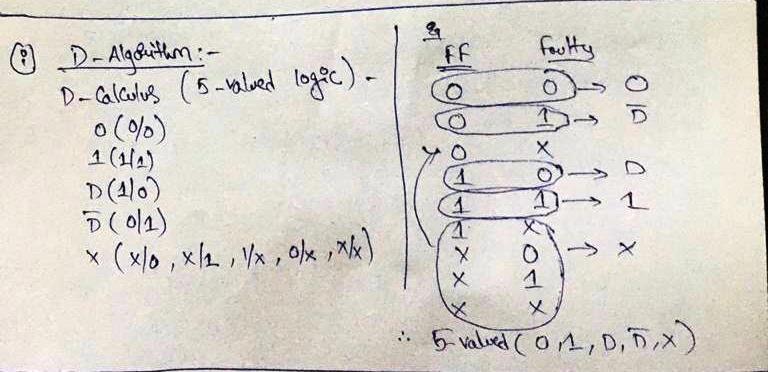 (i) D-Algorithm:-
D-Calculus (5-valued logic) -
0 (0/0)
1 (1/1)
D (1/0)
D̅ (0/1)
X (X/0, X/1, 1/X, 0/X, X/X)
FF Faulty
0 0 → 0
0 1 → D̅
0 X
1 0 → D
1 1 → 1
1 X
X 0 → X
X 1
X X
∴ 5-valued (0, 1, D, D̅, X)